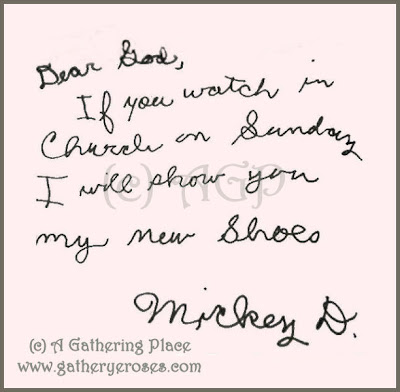 Dear God,
If you watch in
Church on Sunday
I will show you
my new Shoes
(c) AGP
Mickey D.
(c) A Gathering Place
www.gatheryeroses.com